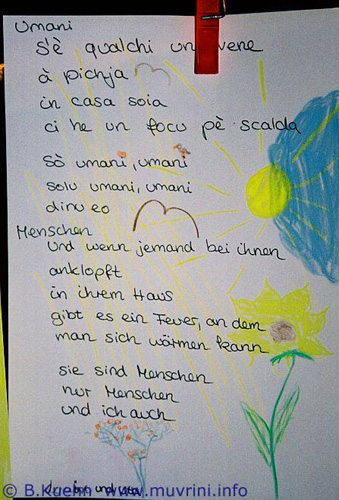 Umani
S'è qualchi unu vene
à pichja
in casa soia
ci he un focu pè scalda
sò umani, umani
solu umani, umani
dinu eo
Menschen
Und wenn jemand bei ihnen
anklopft
in ihrem Haus
gibt es ein Feuer, an dem
man sich wärmen kann
sie sind Menschen
nur Menschen
und ich auch
© B.Kuehn - www.muvrini.info